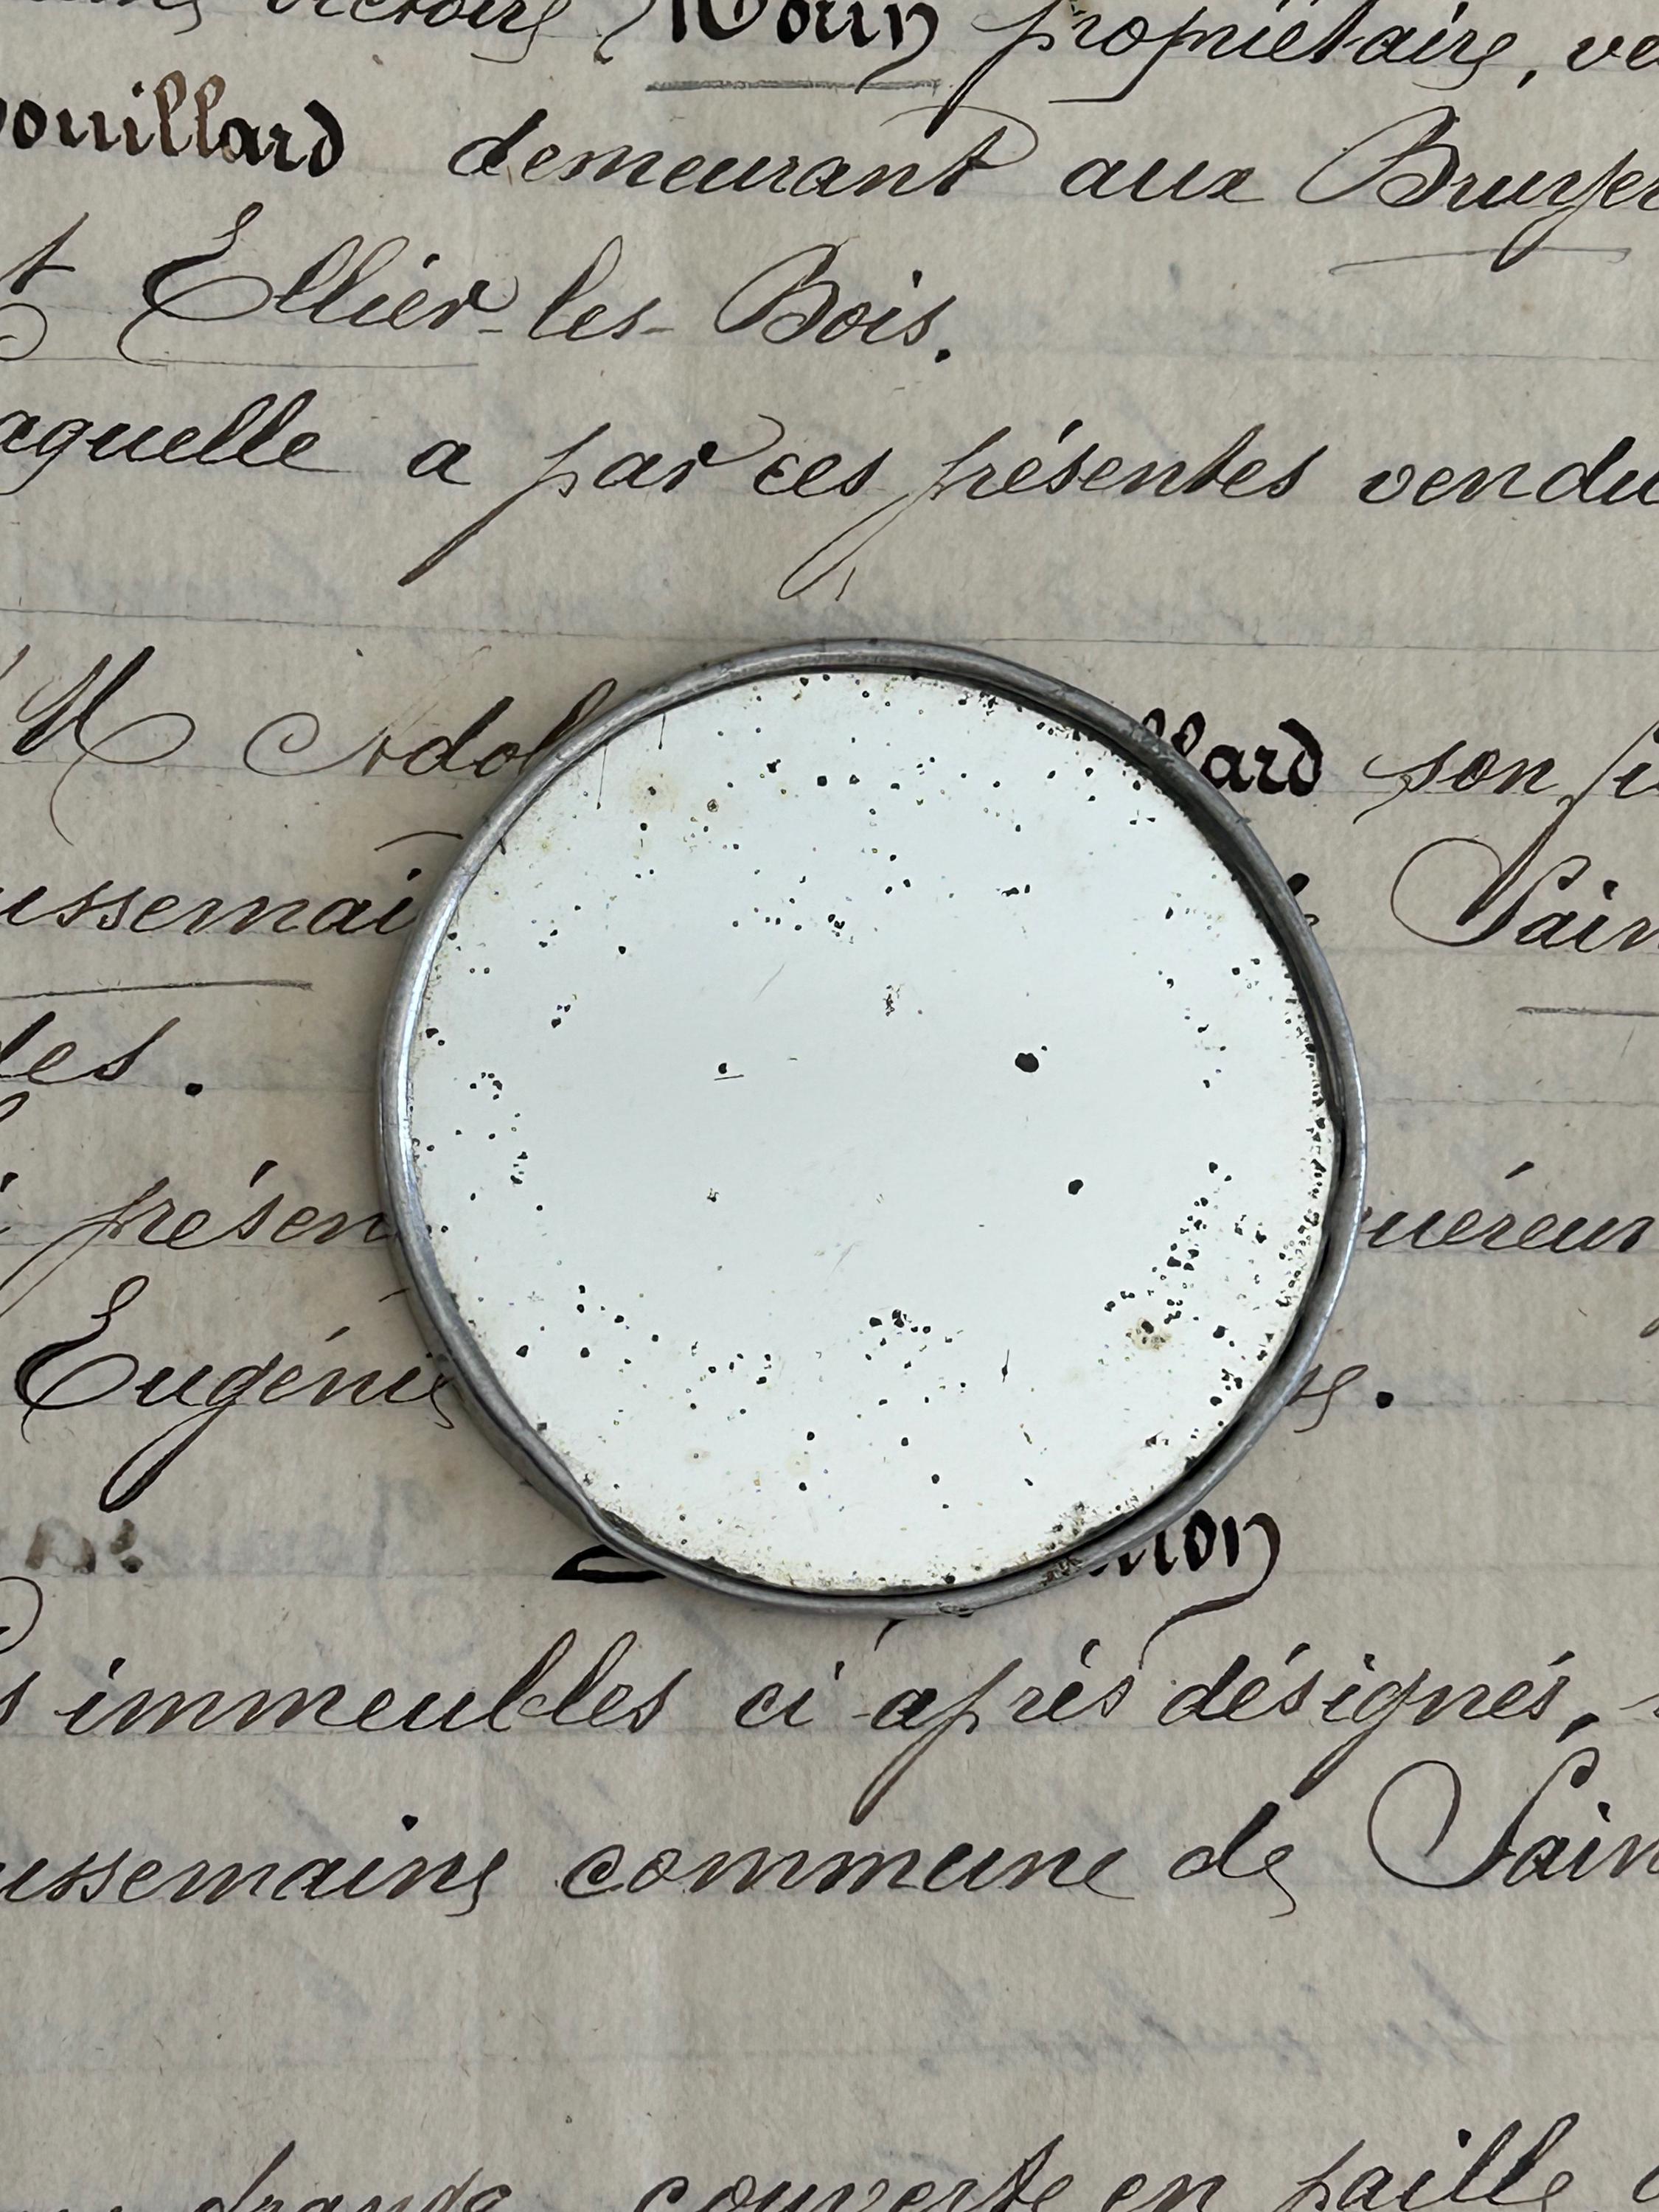 victoire Roun propriétaire, ve
ouillard demeurant aux Bruyer
t Ellier-les-Bois.
aquelle a par ces présentes vendu
M Adol llard son fi
ussemai Sain
les.
présen uéreur
Eugénie
s immeubles ci après désignés,
ussemaine commune de Sain
grange couverte en paille